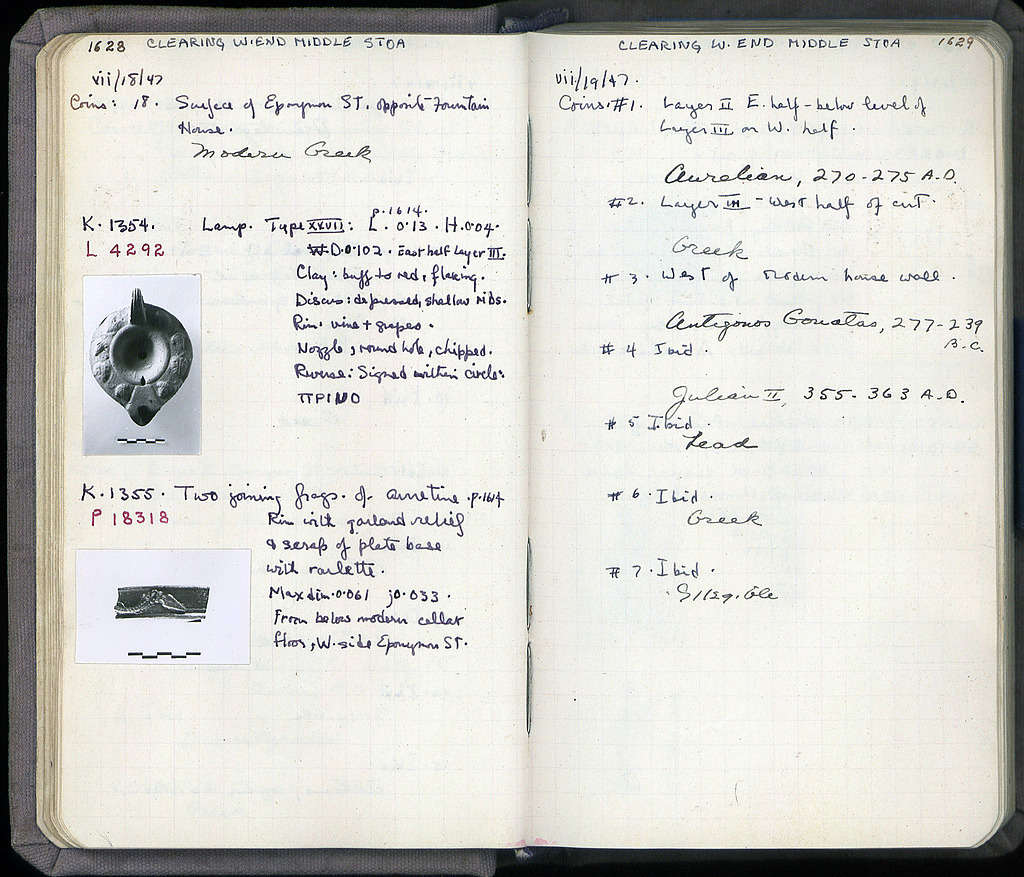 1628 CLEARING W. END MIDDLE STOA
vii/18/47
Coins: 18. Surface of Eponymon ST. opposite Fountain
House.
Modern Greek
p. 1614.
K. 1354. Lamp. Type XXVII: L. 0.13. H. 0.04.
L 4292
W. D. 0.102. East half Layer III.
Clay: buff to red, flaking.
Discus: depressed, shallow ribs.
Rim: vine + grapes.
Nozzle, round hole, chipped.
Reverse: Signed within circle:
ΠΡΙΜΟ
K. 1355. Two joining frags. of arretine. p. 1614
P 18318
Rim with garland relief
& scrap of plate base
with roulette.
Max dim. 0.061 j 0.033.
From below modern cellar
floor, W. side Eponymon ST.
CLEARING W. END MIDDLE STOA 1629
vii/19/47.
Coins. #1. Layer II E. half - below level of
Layer III on W. half.
Aurelian, 270-275 A.D.
#2. Layer III - West half of cut.
Greek
#3. West of modern house wall.
Antigonos Gonatas, 277-239
B.C.
#4 Ibid.
Julian II, 355-363 A.D.
#5 Ibid.
Lead
#6. Ibid.
Greek
#7. Ibid.
Illegible